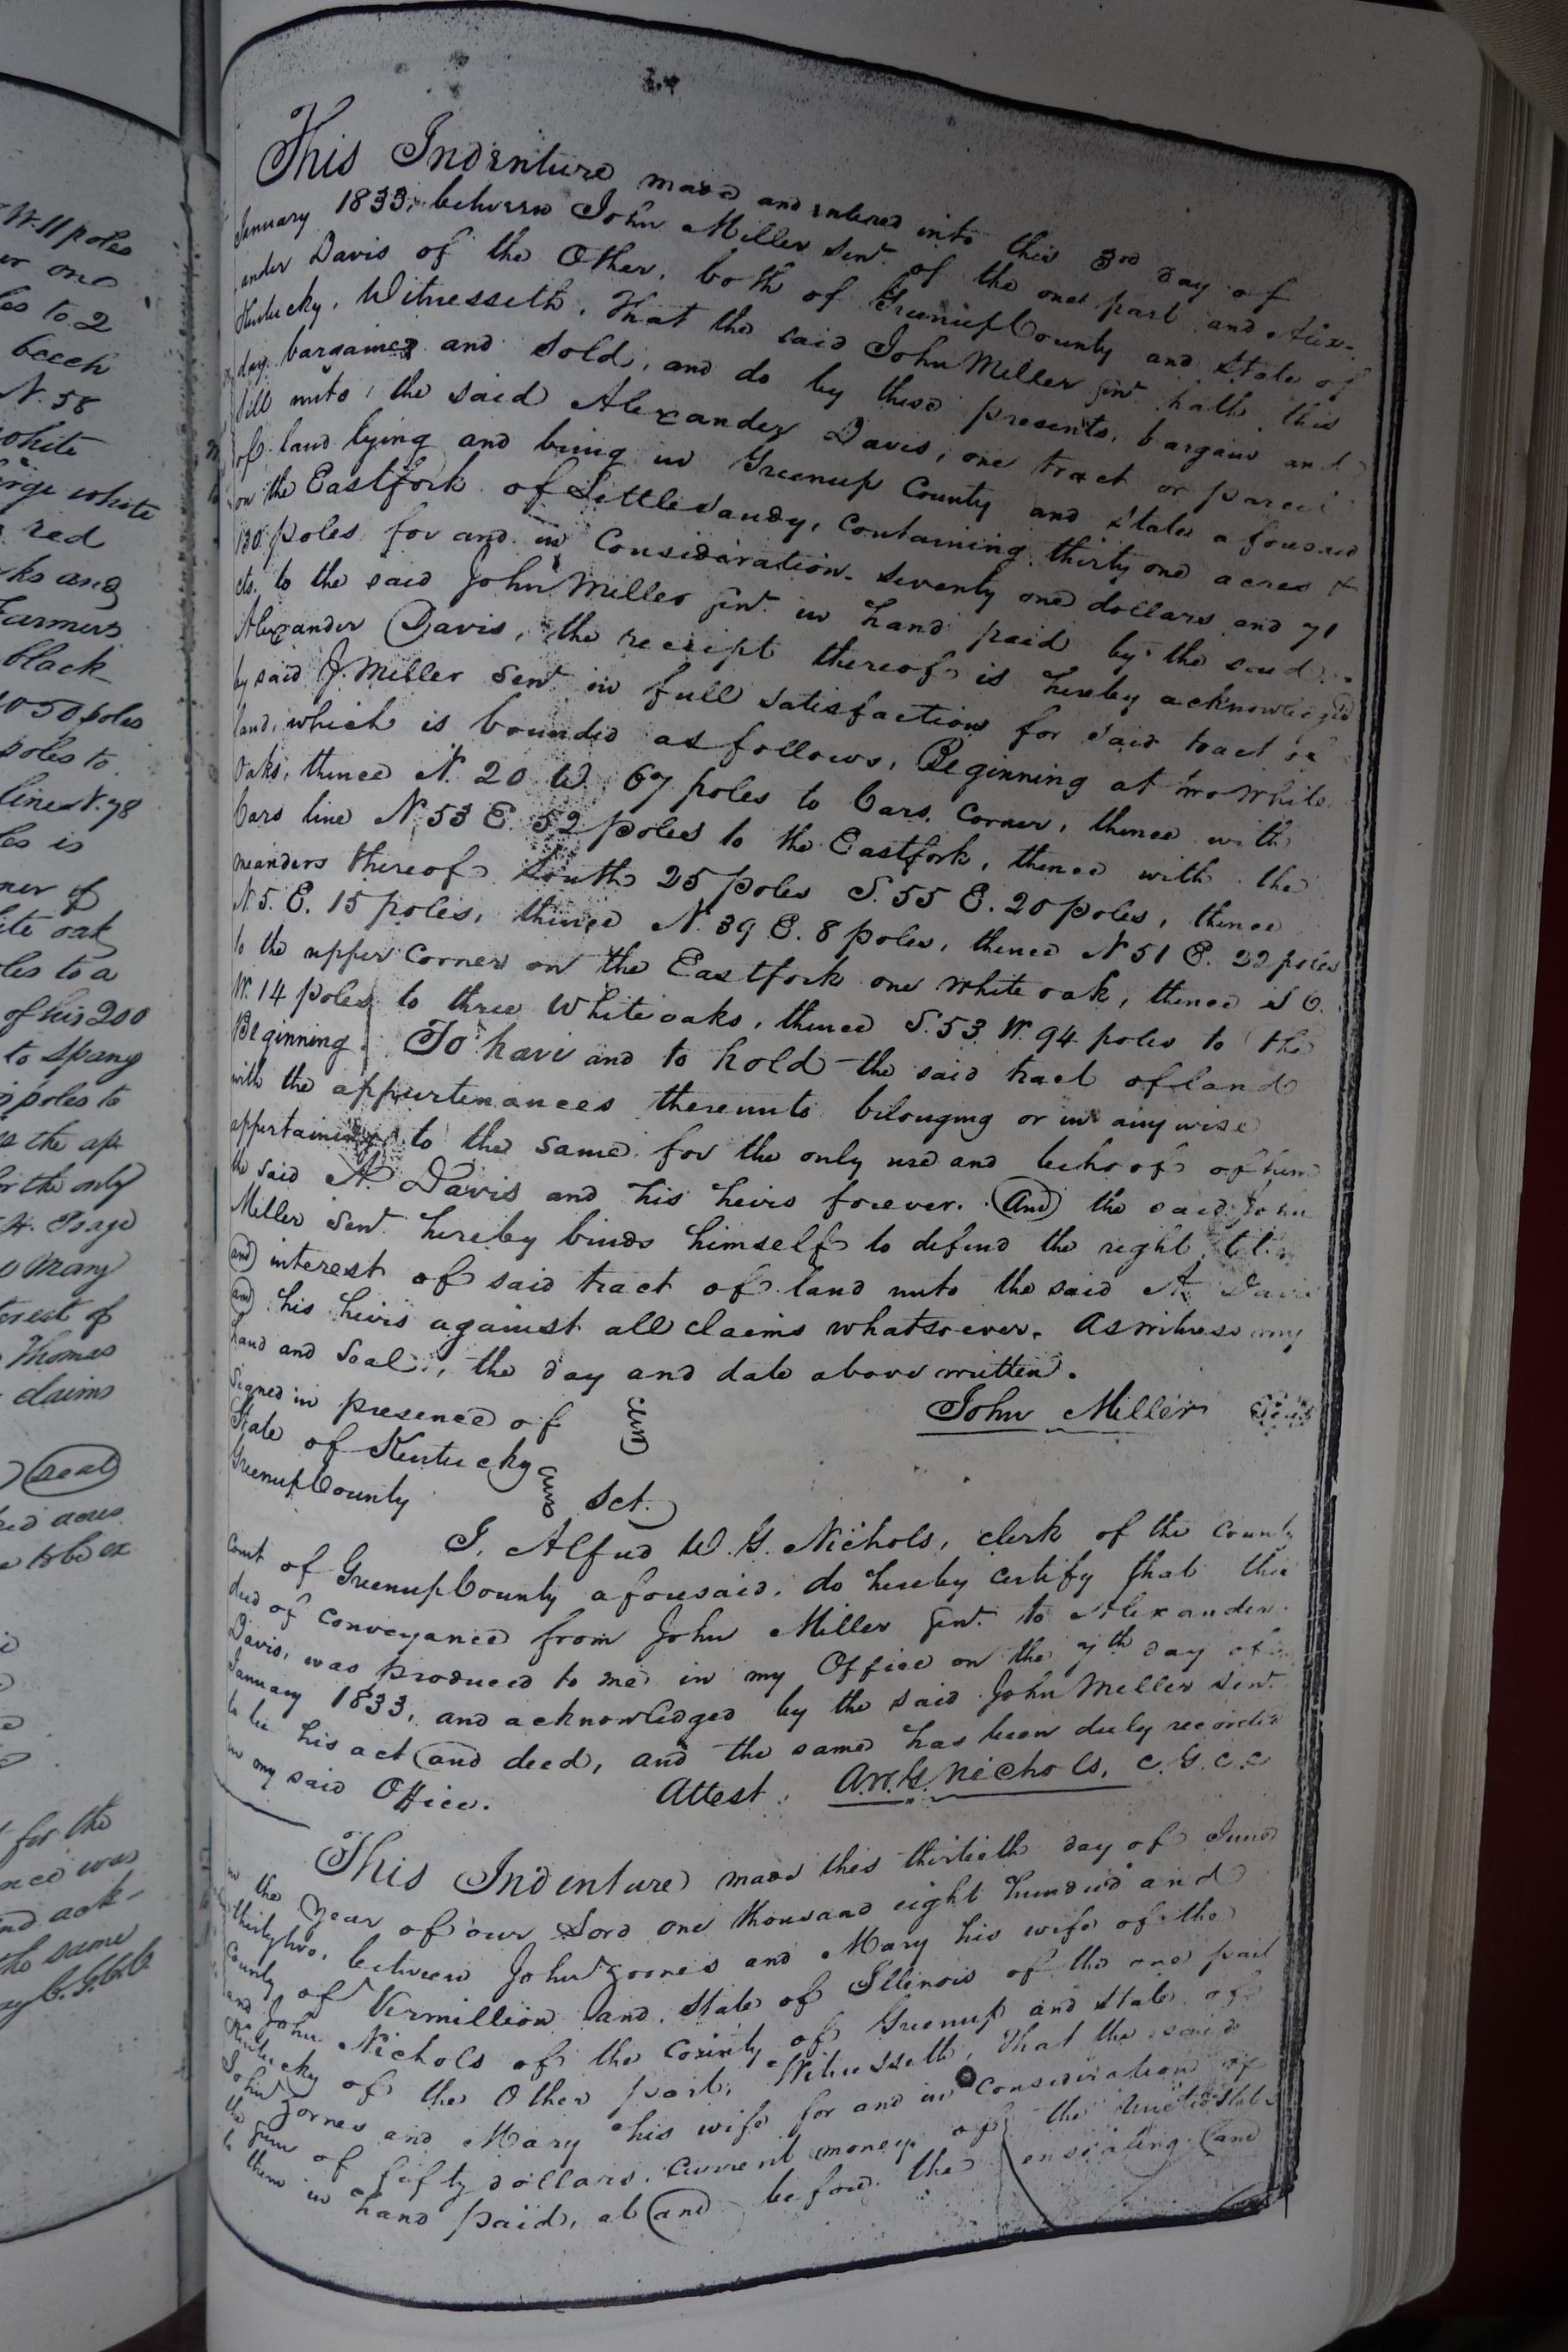 W. 11 poles
or one
les to 2
beech
N. 58
white
large white
red
ks and
Farmers
black
to 50 poles
poles to
line N. 78
les is
ner of
ite oak
les to a
of his 200
to Spang
poles to
the ap
or the only
many
terest of
Thomas
claims
seal
acres
to be ex
for the
was
and ack-
the same
This Indenture made and entered into this 3rd day of
January 1833, between John Miller Senr. of the one part and Alex-
ander Davis of the Other, both of Greenup County and State of
Kentucky, Witnesseth, That the said John Miller Senr. hath this
day bargained and sold, and do by these presents, bargain and
sell unto, the said Alexander Davis, one tract or parcel
of land lying and being in Greenup County and State aforesaid
on the Eastfork of Little Sandy, Containing thirty one acres &
130 poles, for and in Consideration seventy one dollars and 71
cts. to the said John Miller Senr. in hand paid by the said
Alexander Davis, the receipt thereof is hereby acknowledged
by said J. Miller Senr. in full satisfaction for said tract of
land, which is bounded as follows, Beginning at two White
Oaks, thence N. 20 W. 67 poles to Cars. Corner, thence with
Cars line N. 53 E. 52 poles to the Eastfork, thence with the
meanders thereof South 25 poles S. 55 E. 20 poles, thence
N. 5. E. 15 poles, thence N. 39 E. 8 poles, thence N 51 E. 22 poles
to the upper Corner on the Eastfork one white oak, thence S 6.
W. 14 poles to three White oaks, thence S. 53 W. 94 poles to the
Beginning. To have and to hold the said tract of land
with the appurtenances thereunto belonging or in any wise
appertaining to the same for the only use and behoof of him
the said A. Davis and his heirs forever. And the said John
Miller Senr. hereby binds himself to defend the right, title
and interest of said tract of land unto the said A. Davis
and his heirs against all claims whatsoever. As witness my
hand and Seal, the day and date above written.
Signed in presence of John Miller Seal
State of Kentucky
Greenup County Sct.
I, Alfred W. G. Nichols, clerk of the County
Court of Greenup County aforesaid, do hereby certify that this
deed of Conveyance from John Miller Senr. to Alexander
Davis, was produced to me in my Office on the 7th day of
January 1833, and acknowledged by the said John Miller Senr.
to be his act and deed, and the same has been duly recorded
in my said Office. Attest, A. W. G. Nichols, C. G. C. C
This Indenture made this thirtieth day of June
in the Year of our Lord one thousand eight hundred and
thirty two, between John Zornes and Mary his wife of the
County of Vermillion and State of Illinois of the one part
and John Nichols of the County of Greenup and State of
Kentucky of the Other part, Witnesseth, That the said
John Zornes and Mary his wife for and in Consideration of
the sum of fifty dollars, current money of the United States
to them in hand paid, at and before the ensealing and